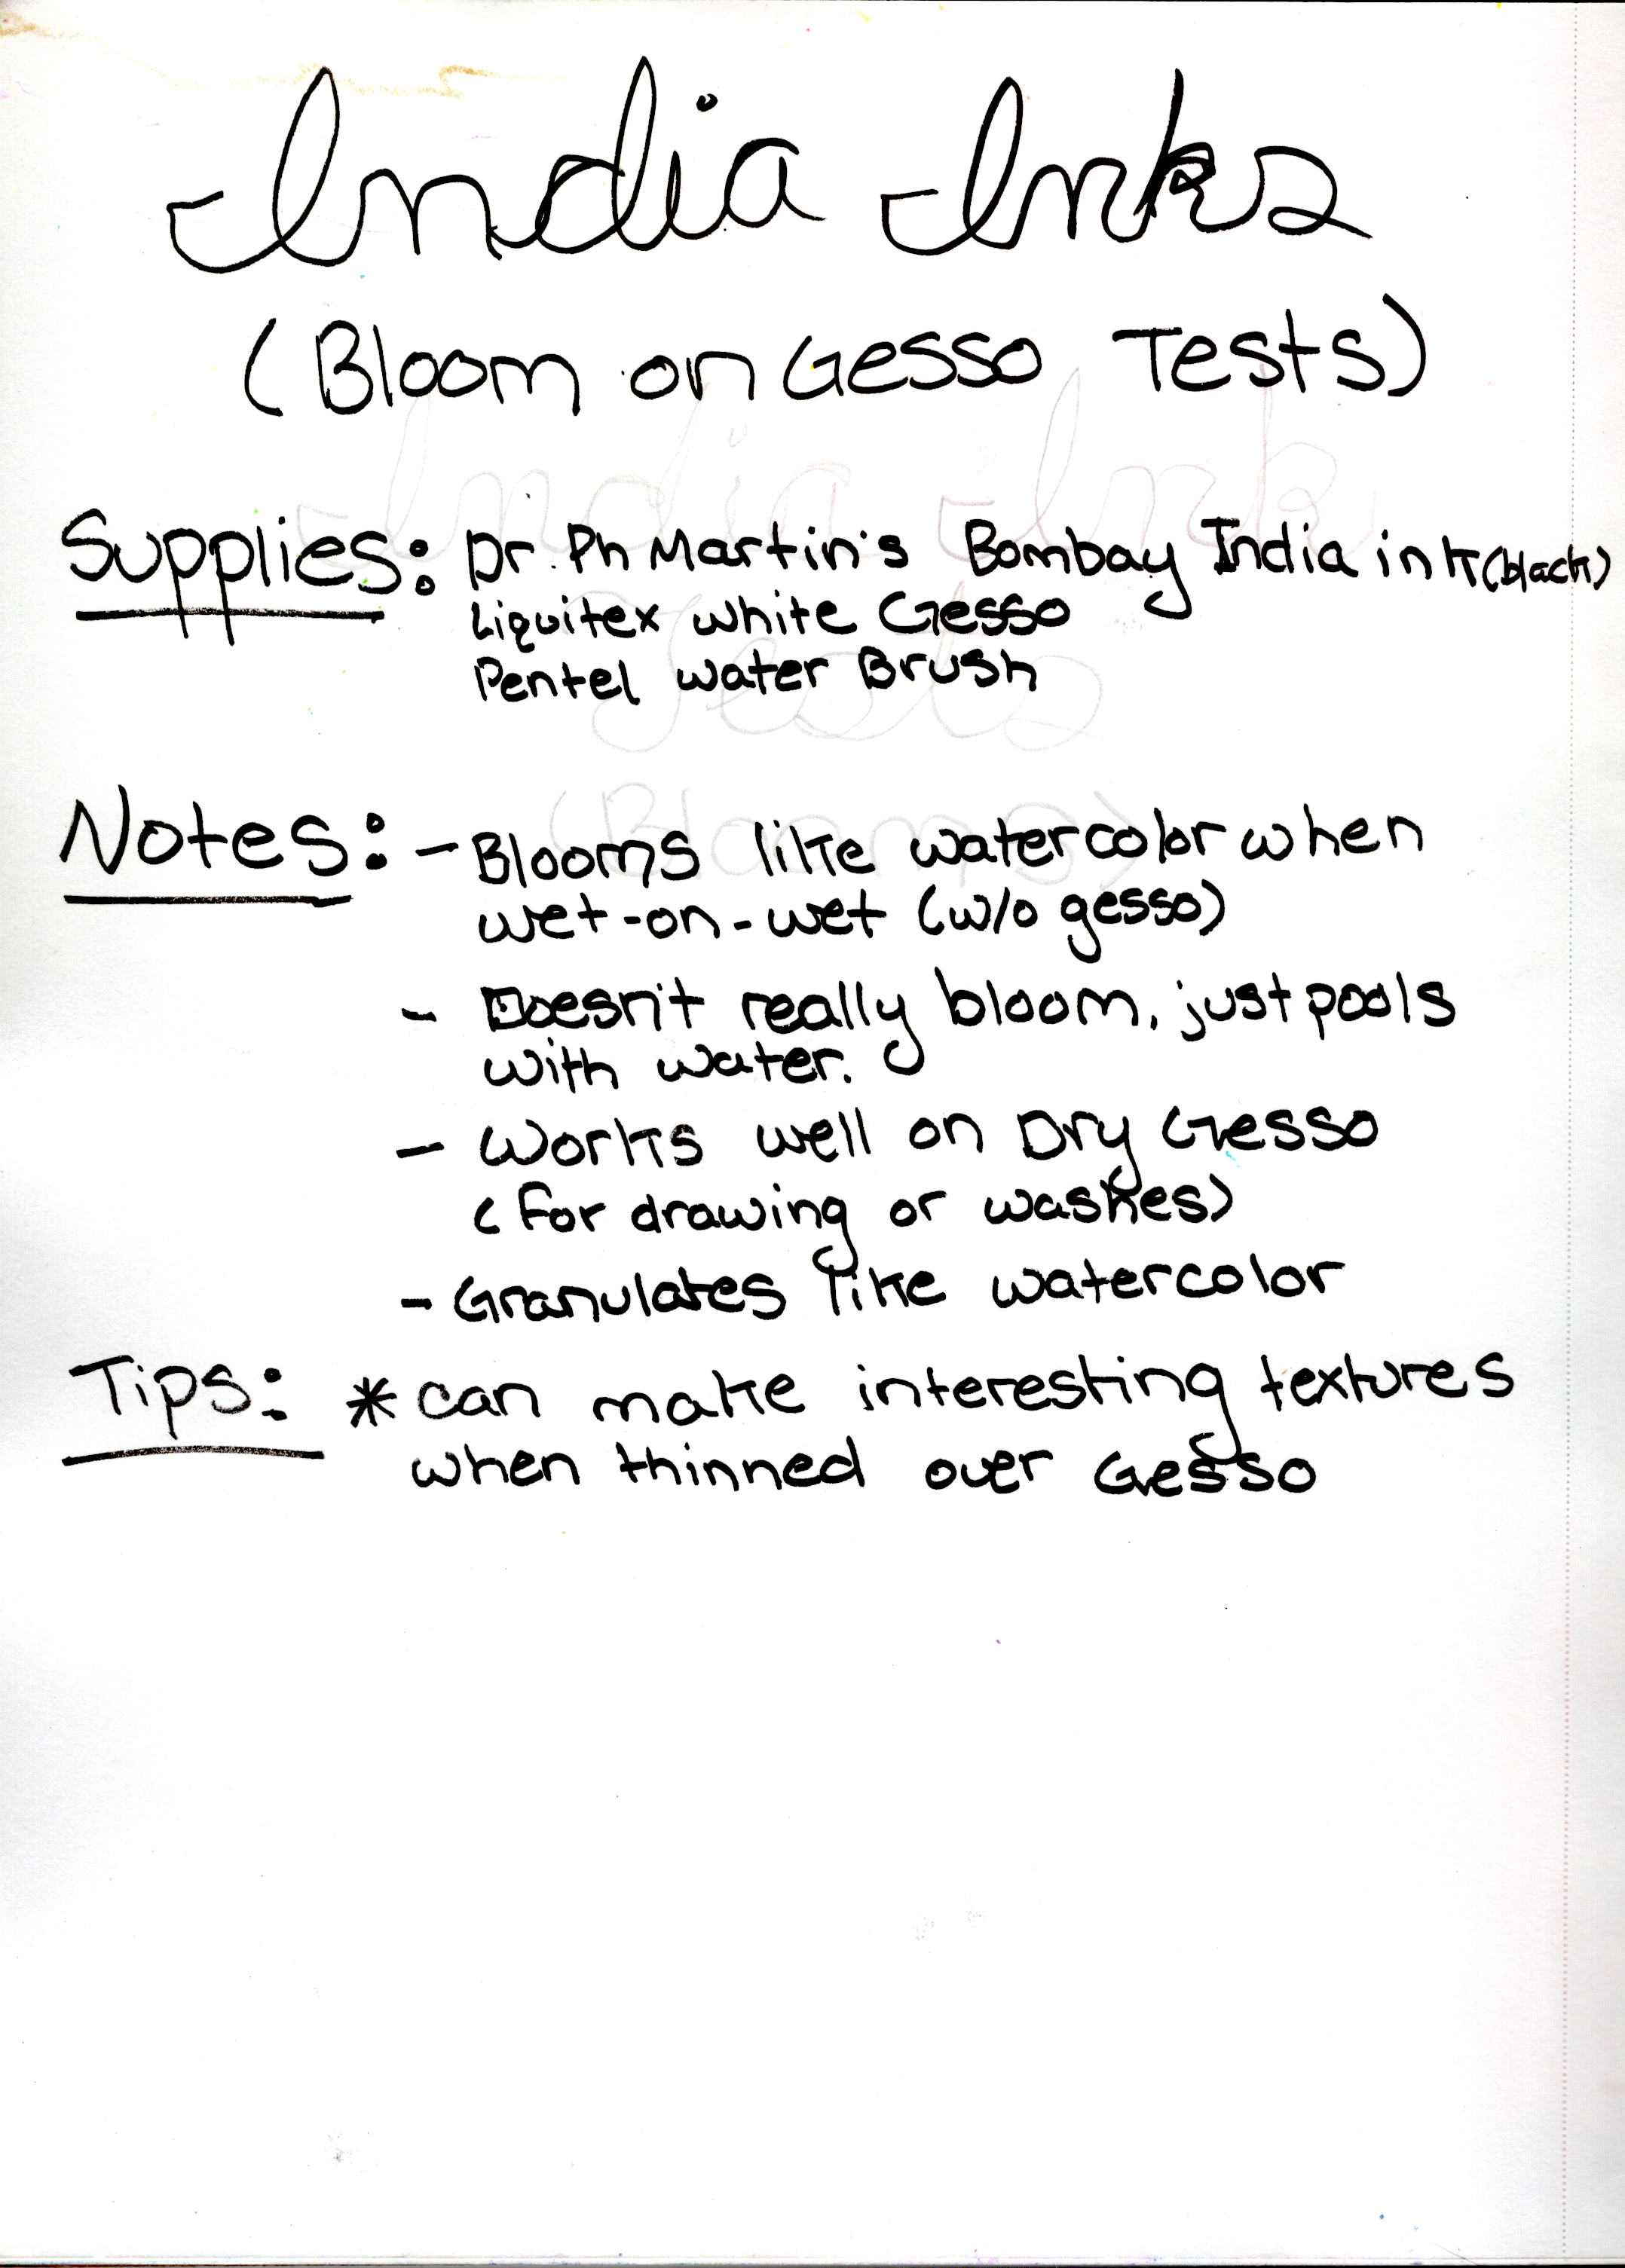 India Inks
(Bloom on Gesso Tests)
Supplies: Dr. Ph Martin's Bombay India ink (black)
Liquitex white Gesso
Pentel water Brush
Notes: - Blooms like watercolor when
wet-on-wet (w/o gesso)
- Doesn't really bloom, just pools
with water.
- Works well on Dry Gesso
(for drawing or washes)
- Granulates like watercolor
Tips: * can make interesting textures
when thinned over Gesso
India Ink
Tests
(Blooms)